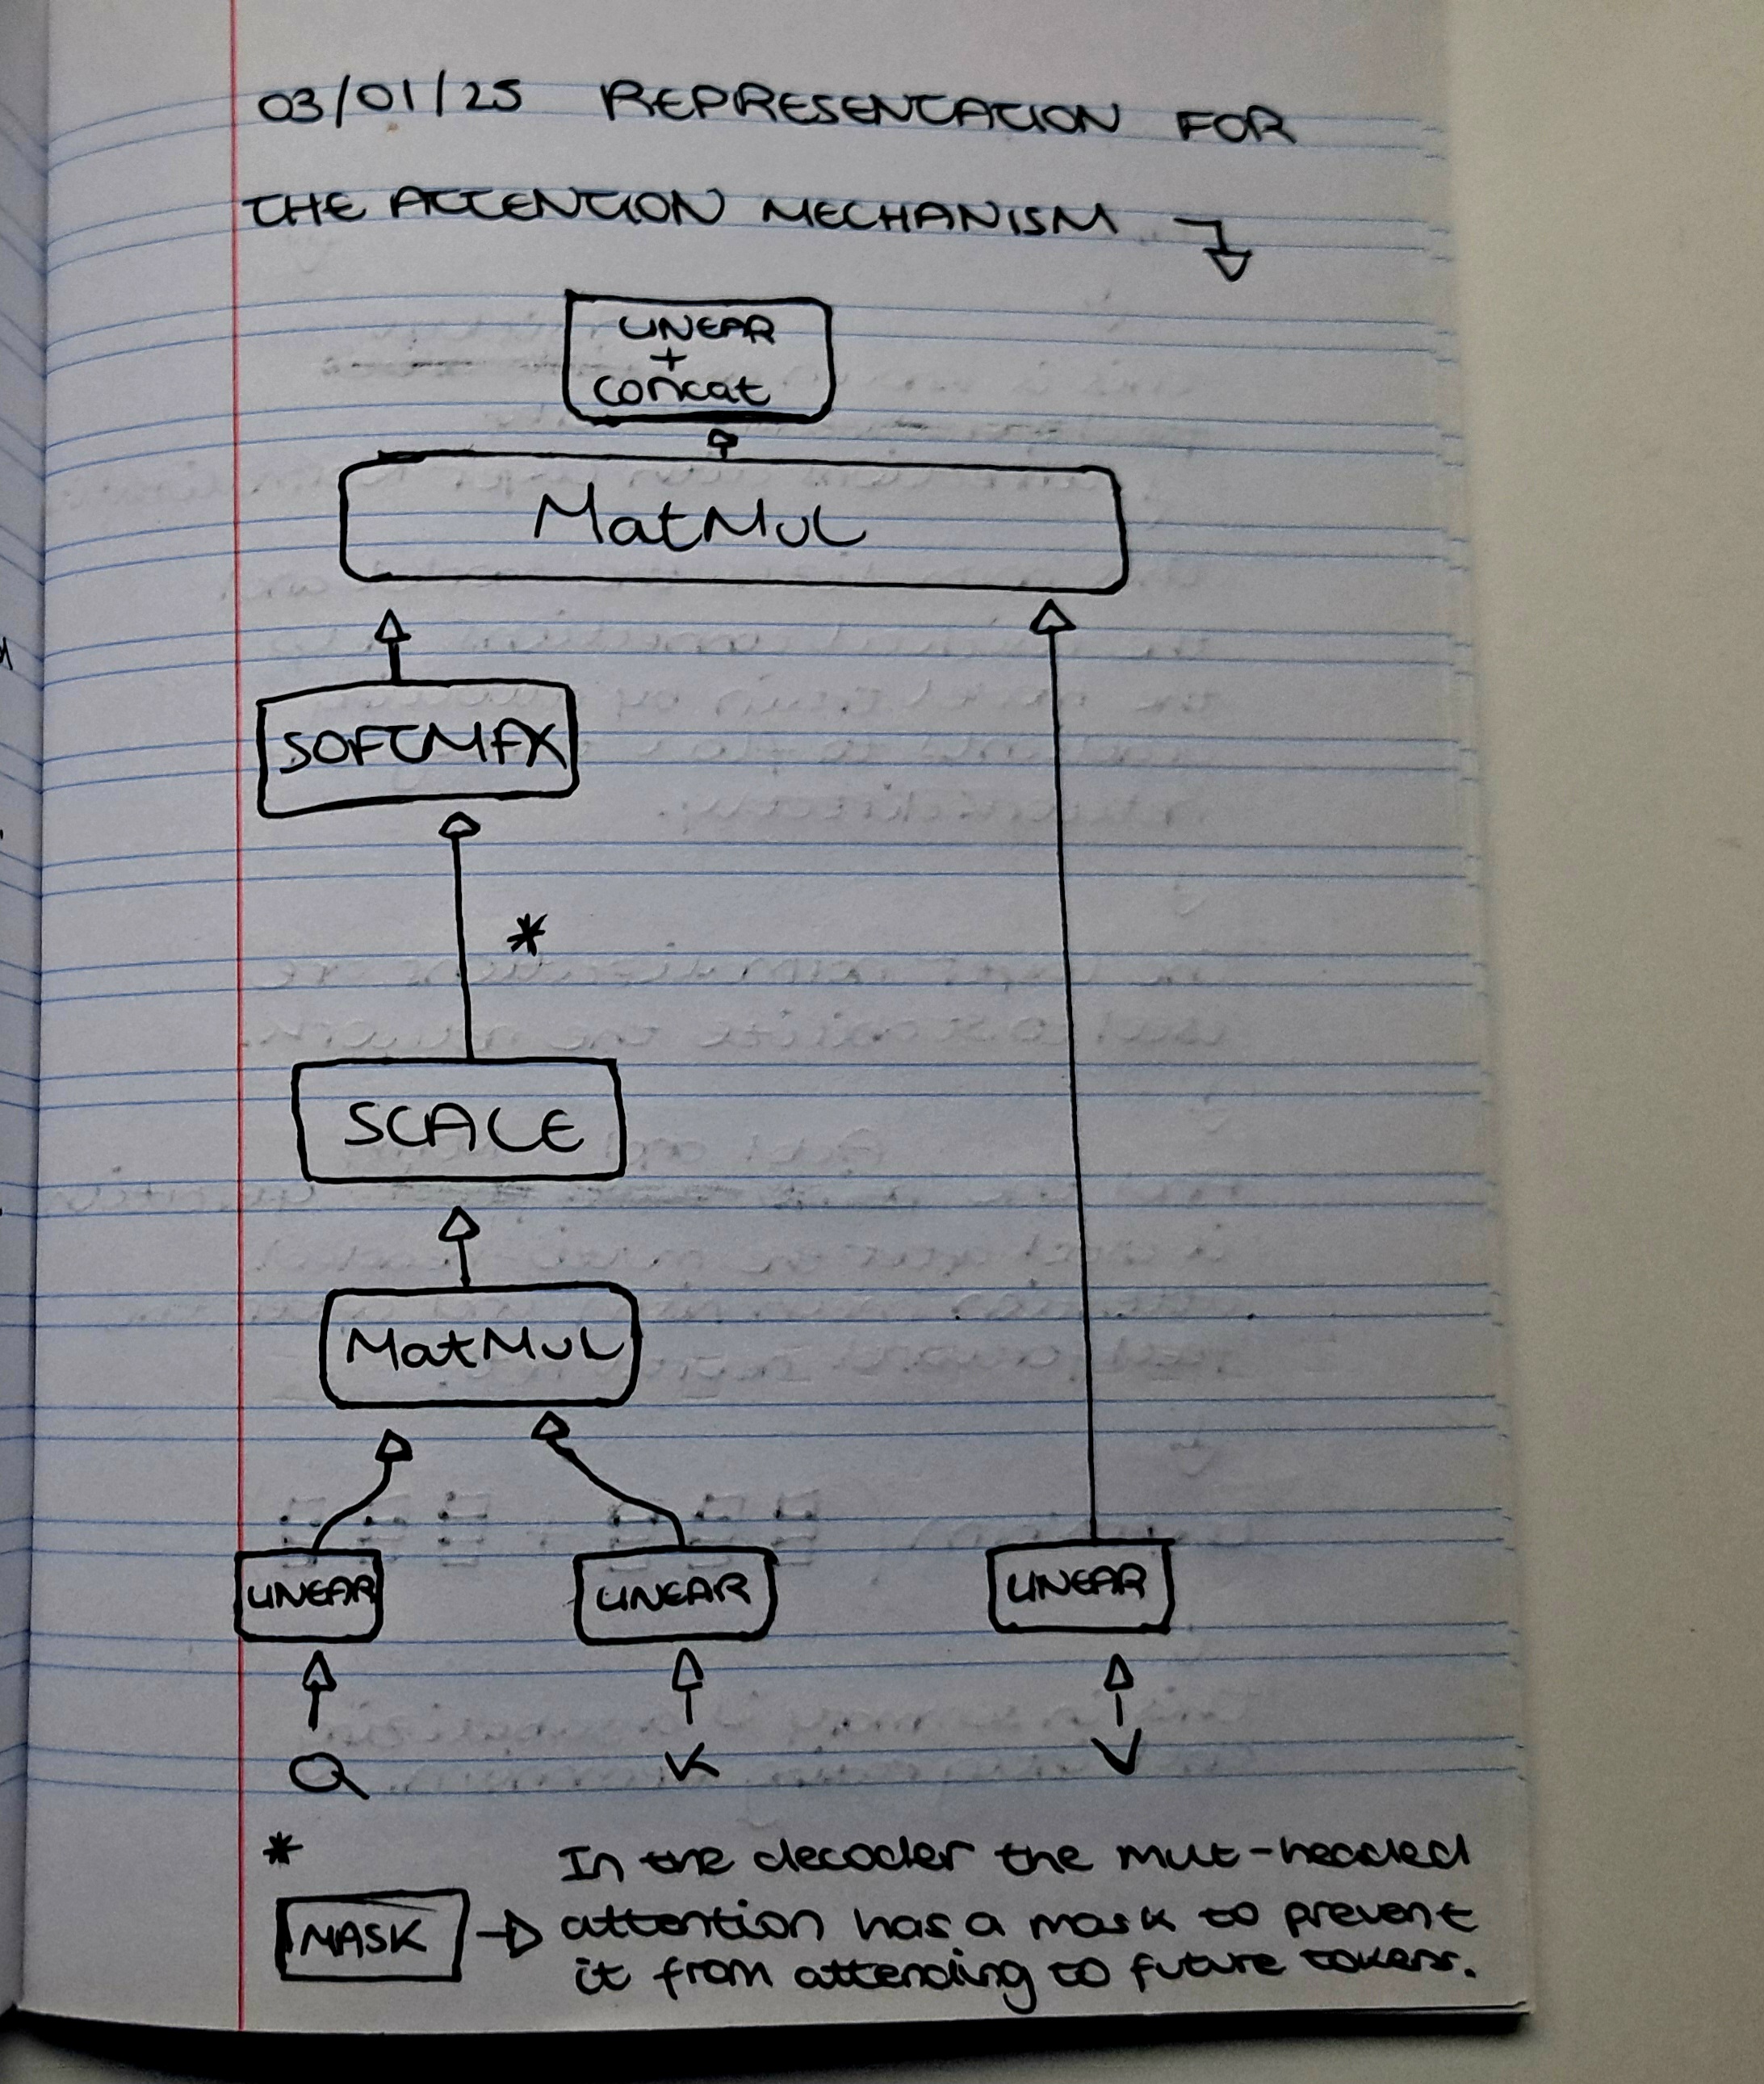 03/01/25 REPRESENTATION FOR
THE ATTENTION MECHANISM
LINEAR
+
Concat
MatMul
SOFTMAX
*
SCALE
MatMul
LINEAR LINEAR LINEAR
Q K V
*
MASK
In the decoder the mult-headed
attention has a mask to prevent
it from attending to future tokens.